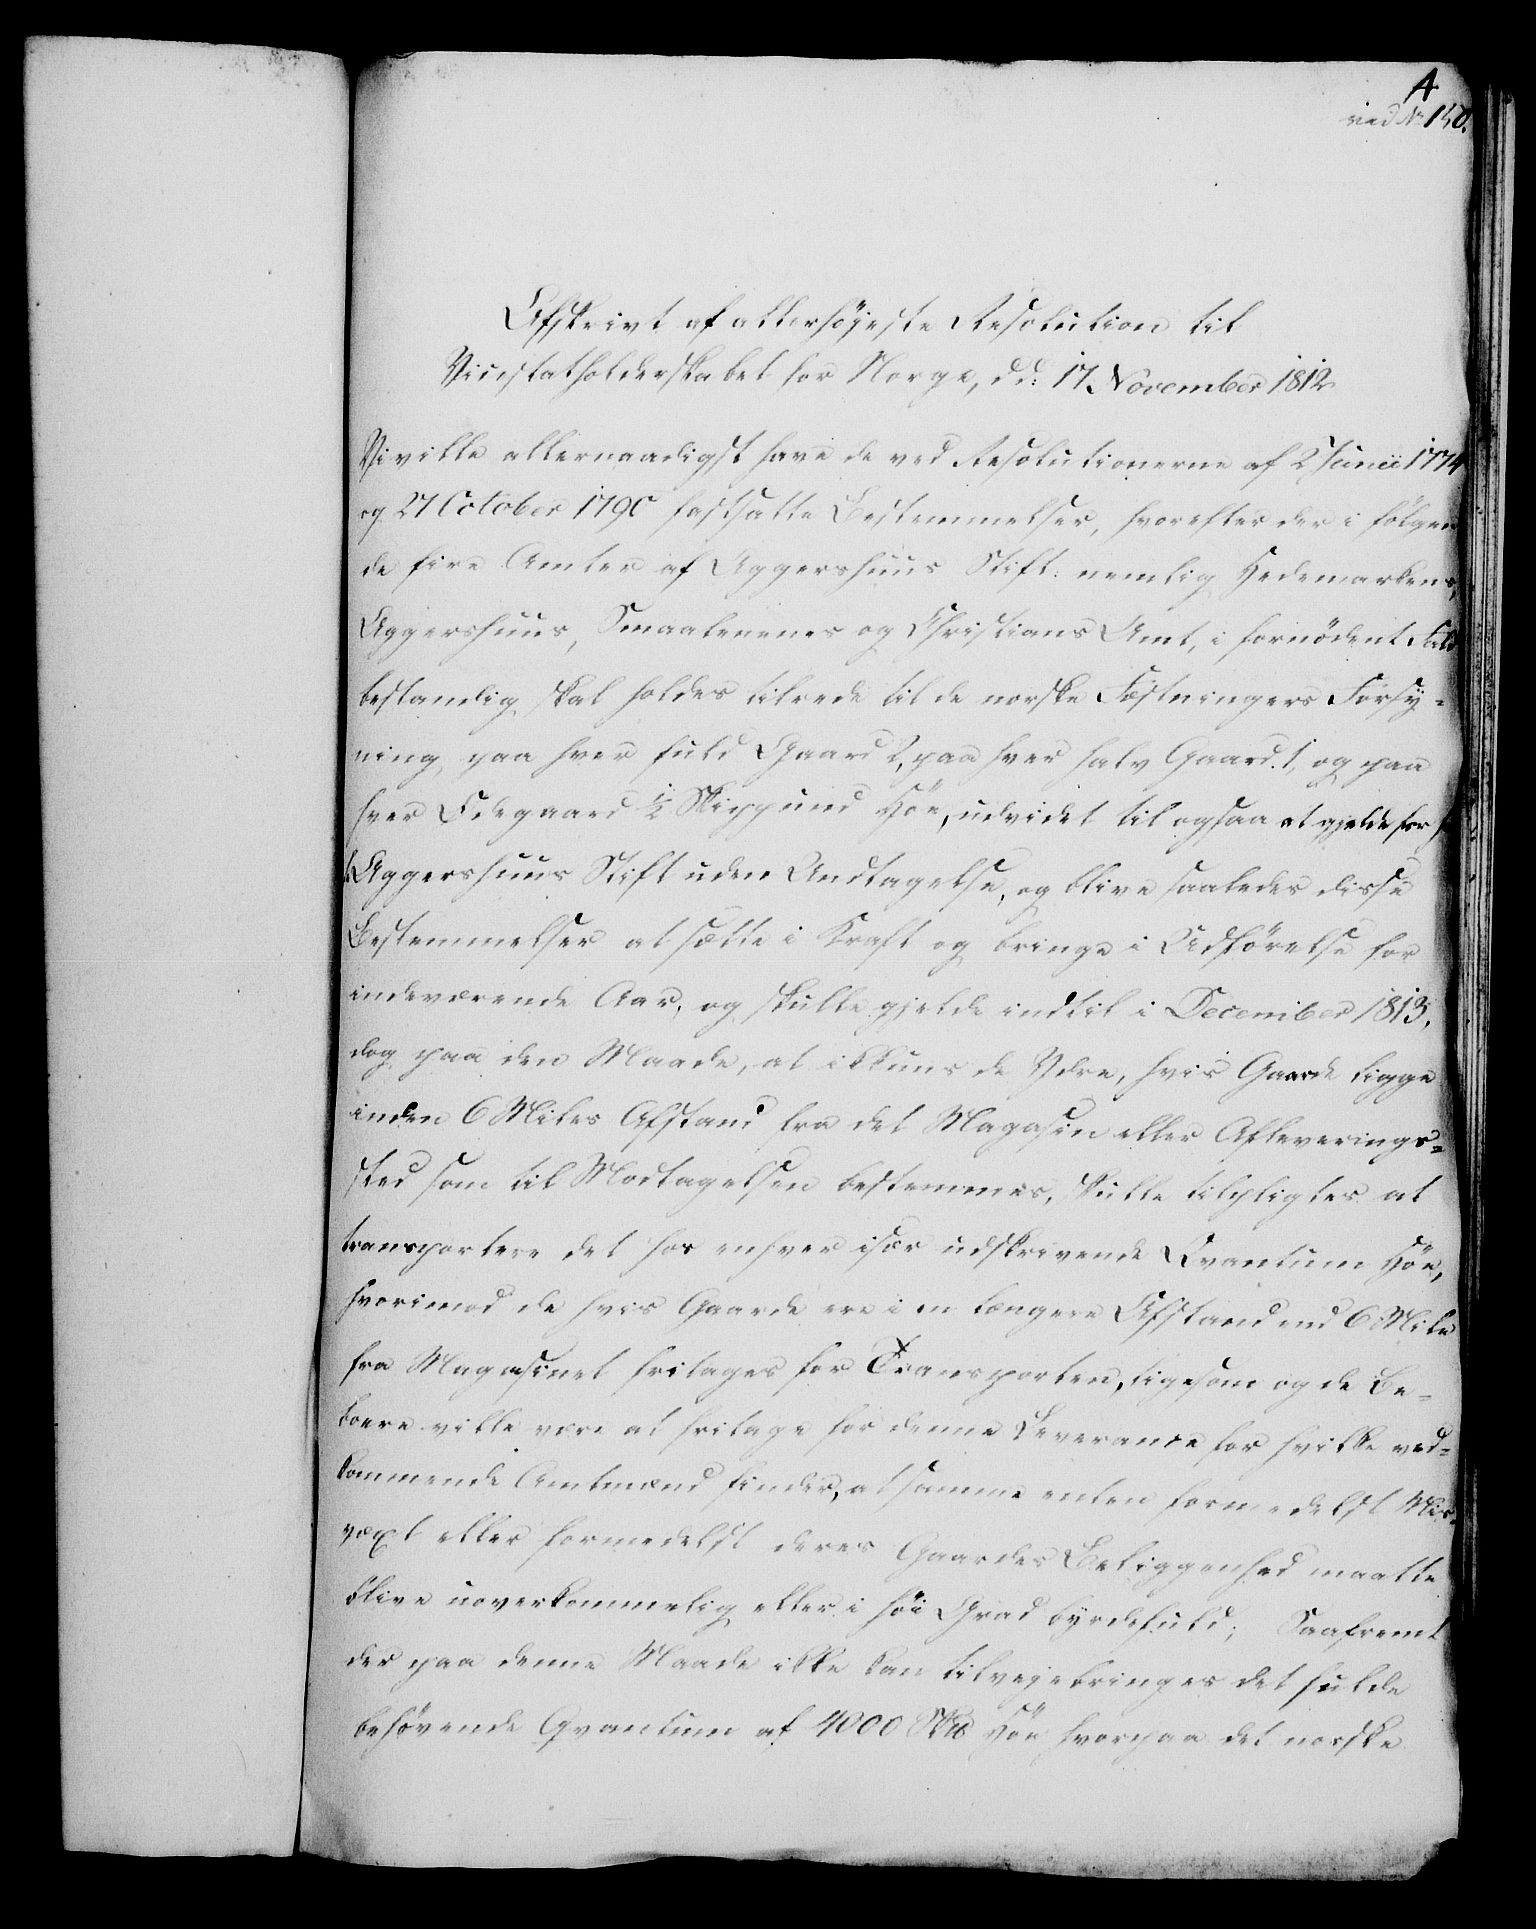 A
ved No 150.
Afskrivt af allerhöjeste Resolution til
Vicestatholderskabet for Norge, dd: 17 November 1812
Vi ville allernaadigst have de ved Resolutionerne af 2 Junii 1774
og 27 October 1790 fastsatte Bestemmelser, hvorefter der i fölgen
de fire Amter af Aggershuus Stift: nemlig Hedemarkens,
Aggershuus, Smaalenenes og Christians Amt, i fornödent Fald
bestandig skal holdes tilrede til de norske Fæstningers Forsÿ-
ning, paa hver fuld Gaard 2, paa hver halv Gaard 1, og paa
hver Ödegaard ½ Skippund Höe, udvidet til ogsaa at gjelde for
Aggershuus Stift uden Undtagelse, og blive saaledes disse
Bestemmelser at sætte i Kraft og bringe i Udförelse for
indeværende Aar, og skulle gjelde indtil i December 1813,
dog paa den Maade, at ikkuns de Ydre, hvis Gaarde ligge
inden 6 Miles Afstand fra det Magasin eller Afleverings-
sted som til Modtagelsen bestemmes, skulle tilpligtes at
transportere det hos enhver især udskrivende Qvantum Höe,
hvorimod de hvis Gaarde ere i en længere Afstand end 6 Mile
fra Magasinet fritages for Transporten, ligesom og de Be-
boere ville være at fritage for denne Leverance for hvilke ved-
kommende Amtmænd finder, at samme enten formedelst Mis-
væxt eller formedelst deres Gaardes Beliggenhed maatte
blive uoverkommelig eller i höi Grad byrdefuld; Saafremt
der paa denne Maade ikke kan tilvejebringes det fulde
behövende Qvantum af 4000 Sk℔ Höe hvorpaa det norske